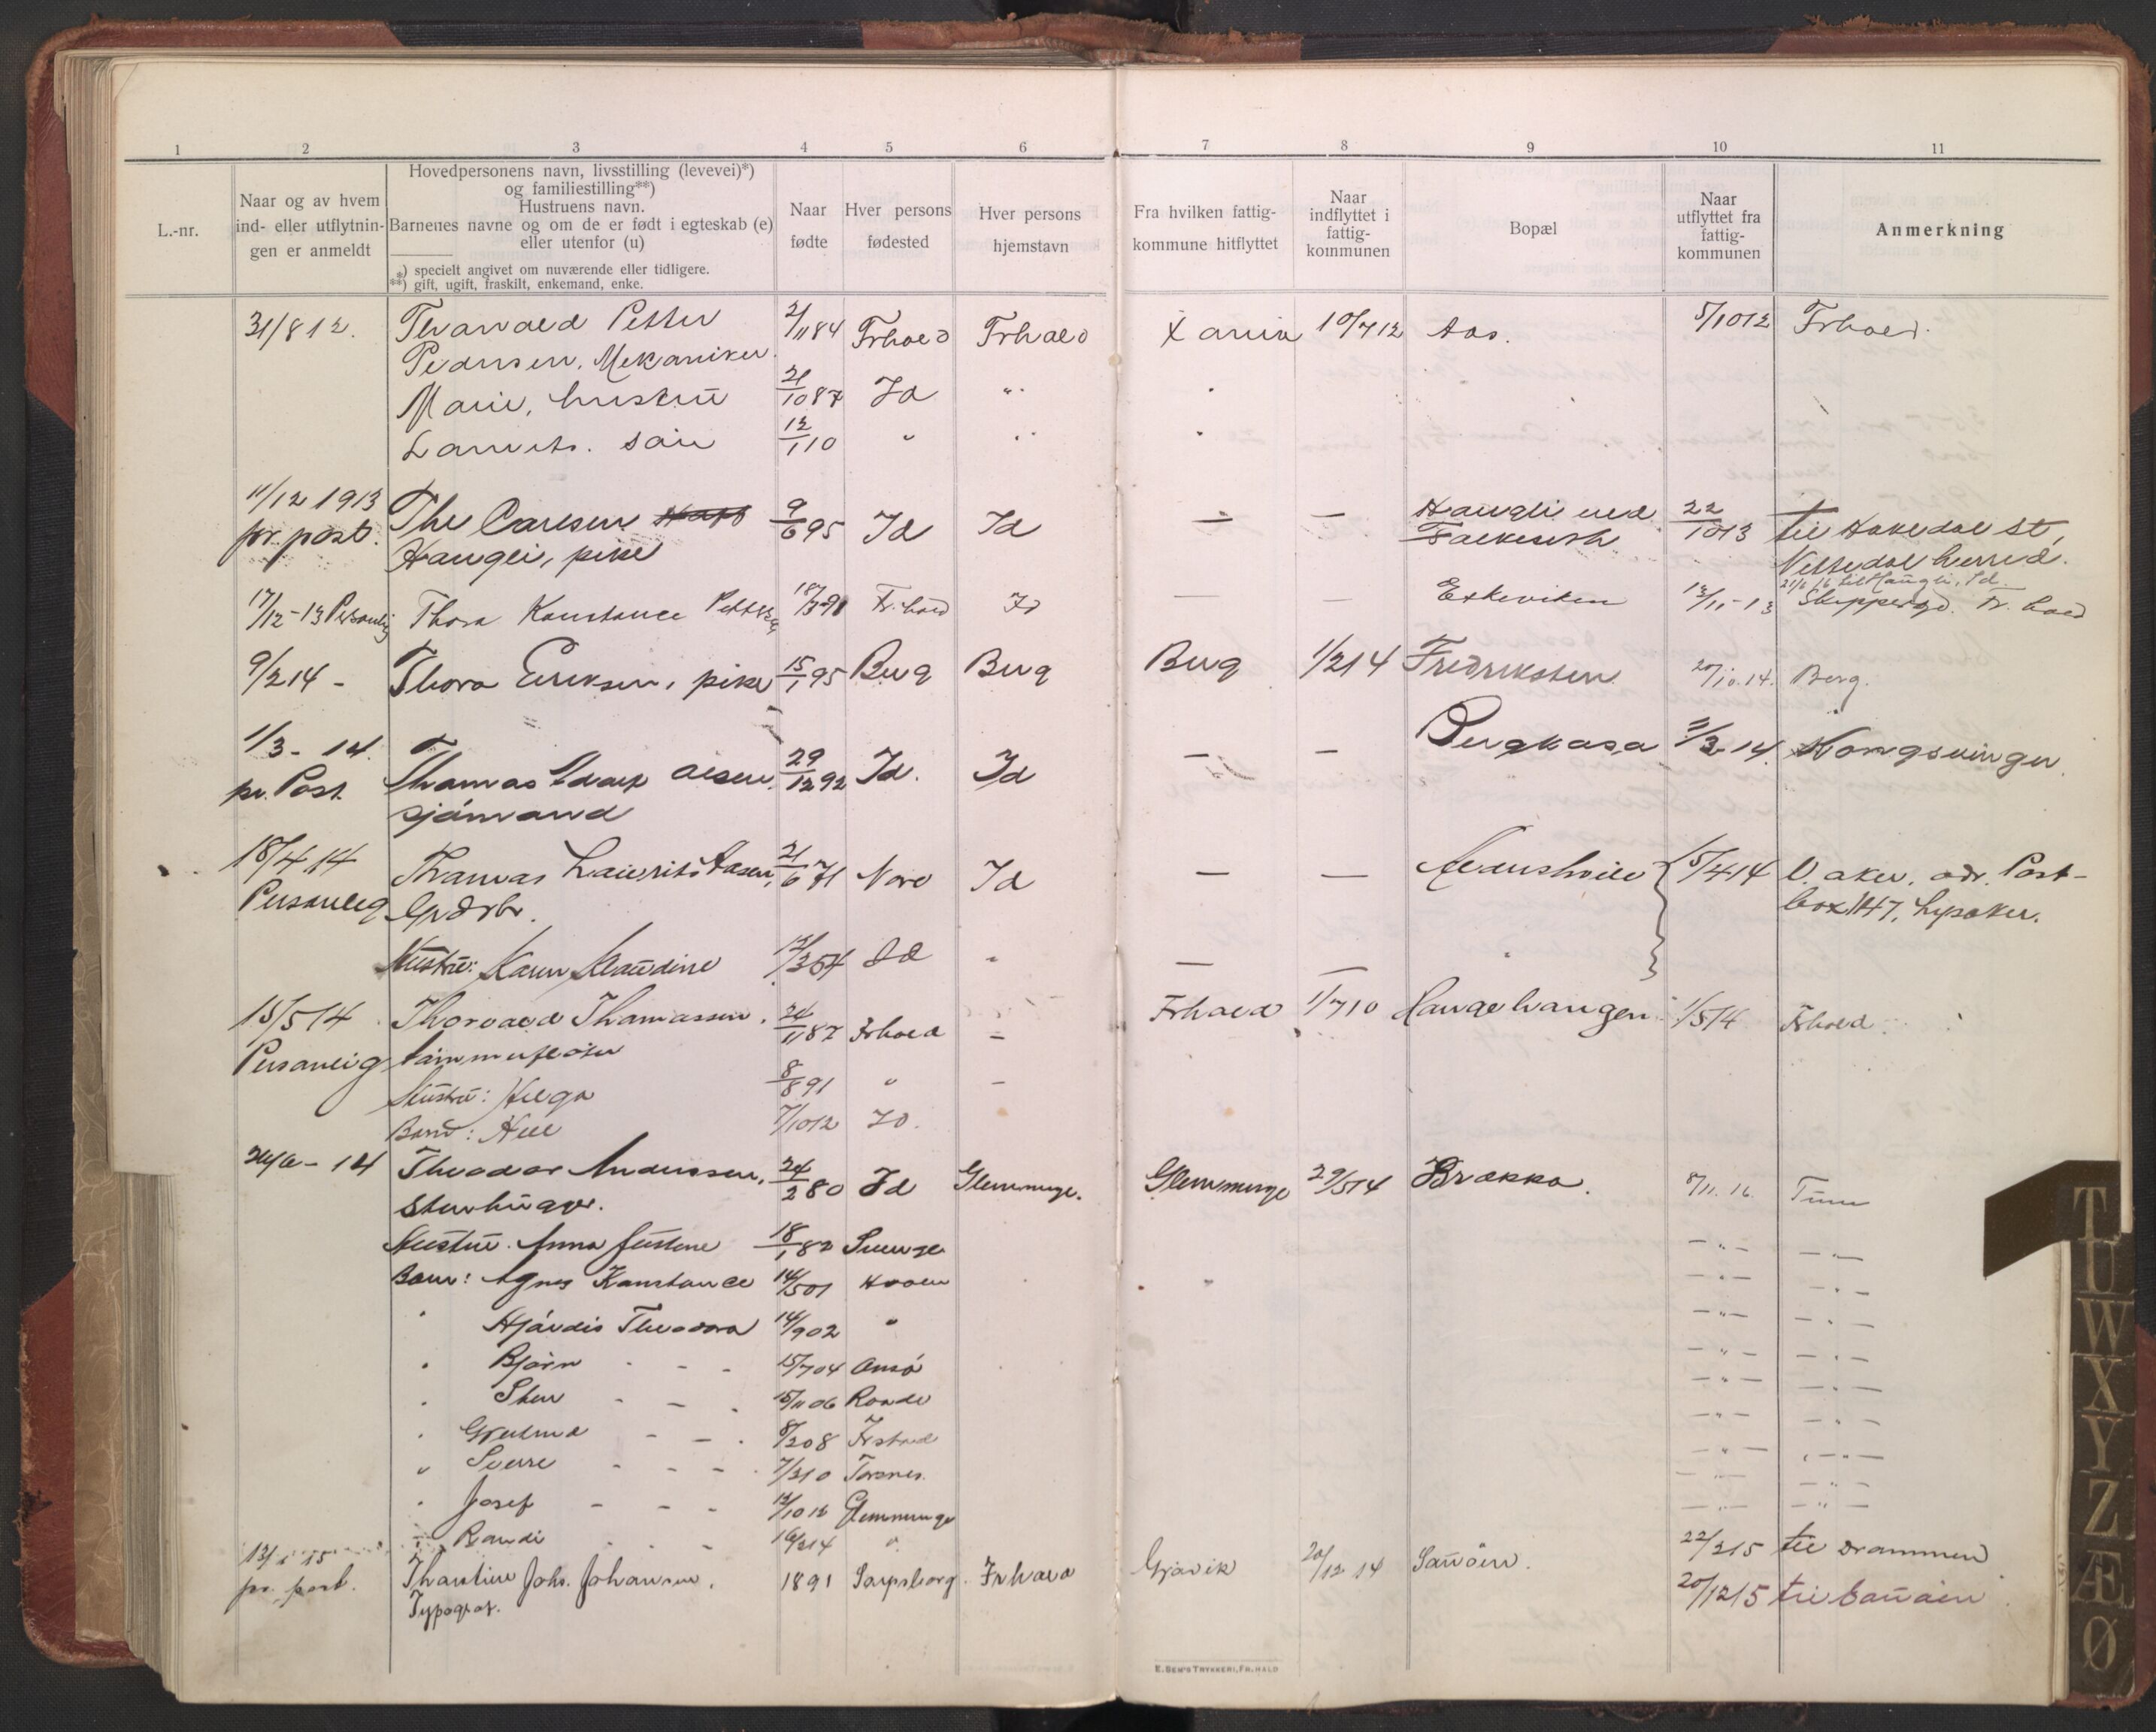 1 2 3 4 5 6 7 8 9 10 11
L.-nr.
Naar og av hvem
ind- eller utflytnin-
gen er anmeldt
Hovedpersonens navn, livsstilling (levevei)*)
og familiestilling**)
Hustruens navn.
Barnenes navne og om de er født i egteskab (e)
eller utenfor (u)
*) specielt angivet om nuværende eller tidligere.
**) gift, ugift, fraskilt, enkemand, enke.
Naar
fødte
Hver persons
fødested
Hver persons
hjemstavn
Fra hvilken fattig-
kommune hitflyttet
Naar
indflyttet i
fattig-
kommunen
Bopæl
Naar
utflyttet fra
fattig-
kommunen
Anmerkning
31/8 12. Thorvald Petter 2/11 84 Frhald Frhald Xania 10/7 12 Aas. 5/10 12 Frhald.
Pedersen, Mekaniker.
Marie, hustru 21/10 87 Id "
Lauritz. søn 12/1 10 " "
11/12 1913 Thea Carlsen 9/6 95 Id Id — — Haugli ved 22/10 13 til Hakedal St,
pr. post. Haugli, pike Nittedal herred.
21/6 16 til Haugli, Id.
17/12-13 Personlig Thora Konstance 18/3 98 Fr.hald Id — — Eskeviken 13/11-13 Skippergd. Fr.hald
9/2 14 - Thora Eriksen, pike 15/1 95 Berg Berg Berg 1/2 14 Fredriksten 20/10.14. Berg.
1/3 - 14. Thomas Olsen 29/12 92 Id. Id — — 11/3-14. Kongsvinger
pr. Post. sjømand
18/4 14 Thomas Laurits Aasen, 21/6 71 Id — — 15/4 14 V. aker. adr. Post-
Personlig box 147, Lysaker.
Hustru: Karen Id " —
15/5 14 Thorvald Thomassen. 24/11 87 Frhald — Frhald 1/7 10 1/5 14 Frhald.
Personlig tømmerfløter
Hustru: Helga 8/8 91 " —
Barn: 7/10 12 Id.
24/6 - 14 Theodor Anderssen, 24/2 80 Id Glemminge. Glemminge 29/5 14 Brække. 8/11.16. Tune
Stenhugger.
Hustru. Anna Justine 18/1 82 — " — — " —
Barn: Agnes Konstance 14/5 01 — " — — " —
" Hjørdis Theodora 14/9 02 " — " — — " —
" Bjørn - - - 15/7 04 Onsø — " — — " —
" Sten - - - 15/11 06 Raade — " — — " —
" - - - 8/2 08 Frstad — " — — " —
" Sverre - - - 7/3 10 Torsnes. — " — — " —
" Josef - - - Glemminge — " — — " —
" Randi - - - 16/2 14 " — " — — " —
pr. post. Thorstein Johs. Johansen, 1891 Sarpsborg. Frhald Gjøvik 20/12 14 Sauøen. 22/2 15 til Drammen
Typograf. 20/12 15 til Sauøen
E. SEM'S TRYKKERI, FR.HALD
T
U
W
X
Y
Z
Æ
Ø